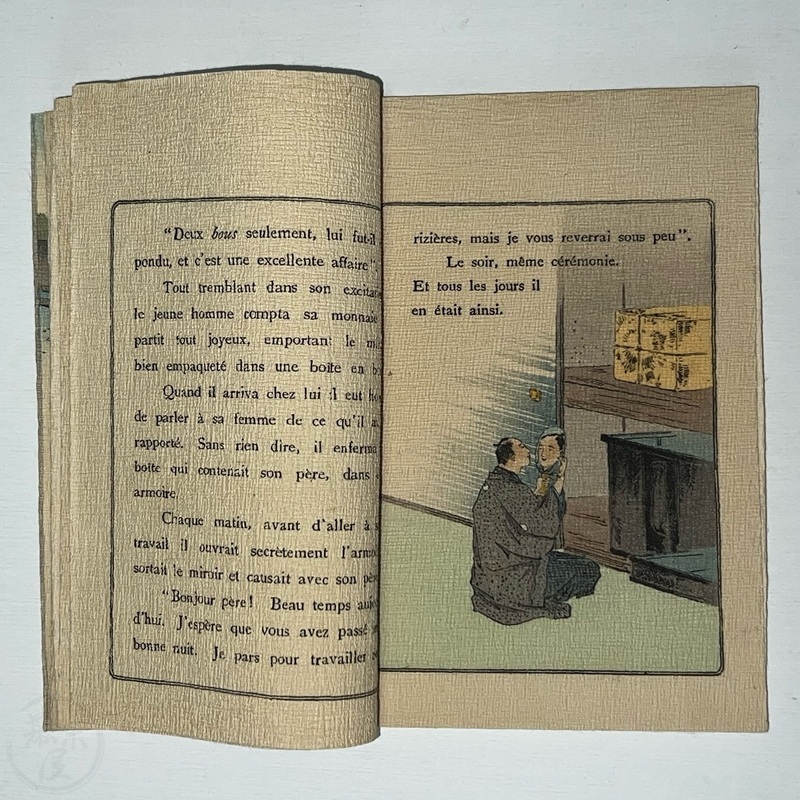 "Deux bous seulement, lui fut-il
pondu, et c'est une excellente affaire".
Tout tremblant dans son
le jeune homme compta sa monnaie
partit tout joyeux, emportant le
bien empaqueté dans une boîte en
Quand il arriva chez lui il eut
de parler à sa femme de ce qu'il
rapporté. Sans rien dire, il
boîte qui contenait son père, dans
armoire.
Chaque matin, avant d'aller à
travail il ouvrait secrètement
sortait le miroir et causait avec son
"Bonjour père! Beau temps
d'hui. J'espère que vous avez passé
bonne nuit. Je pars pour travailler
rizières, mais je vous reverrai sous peu".
Le soir, même cérémonie.
Et tous les jours il
en était ainsi.